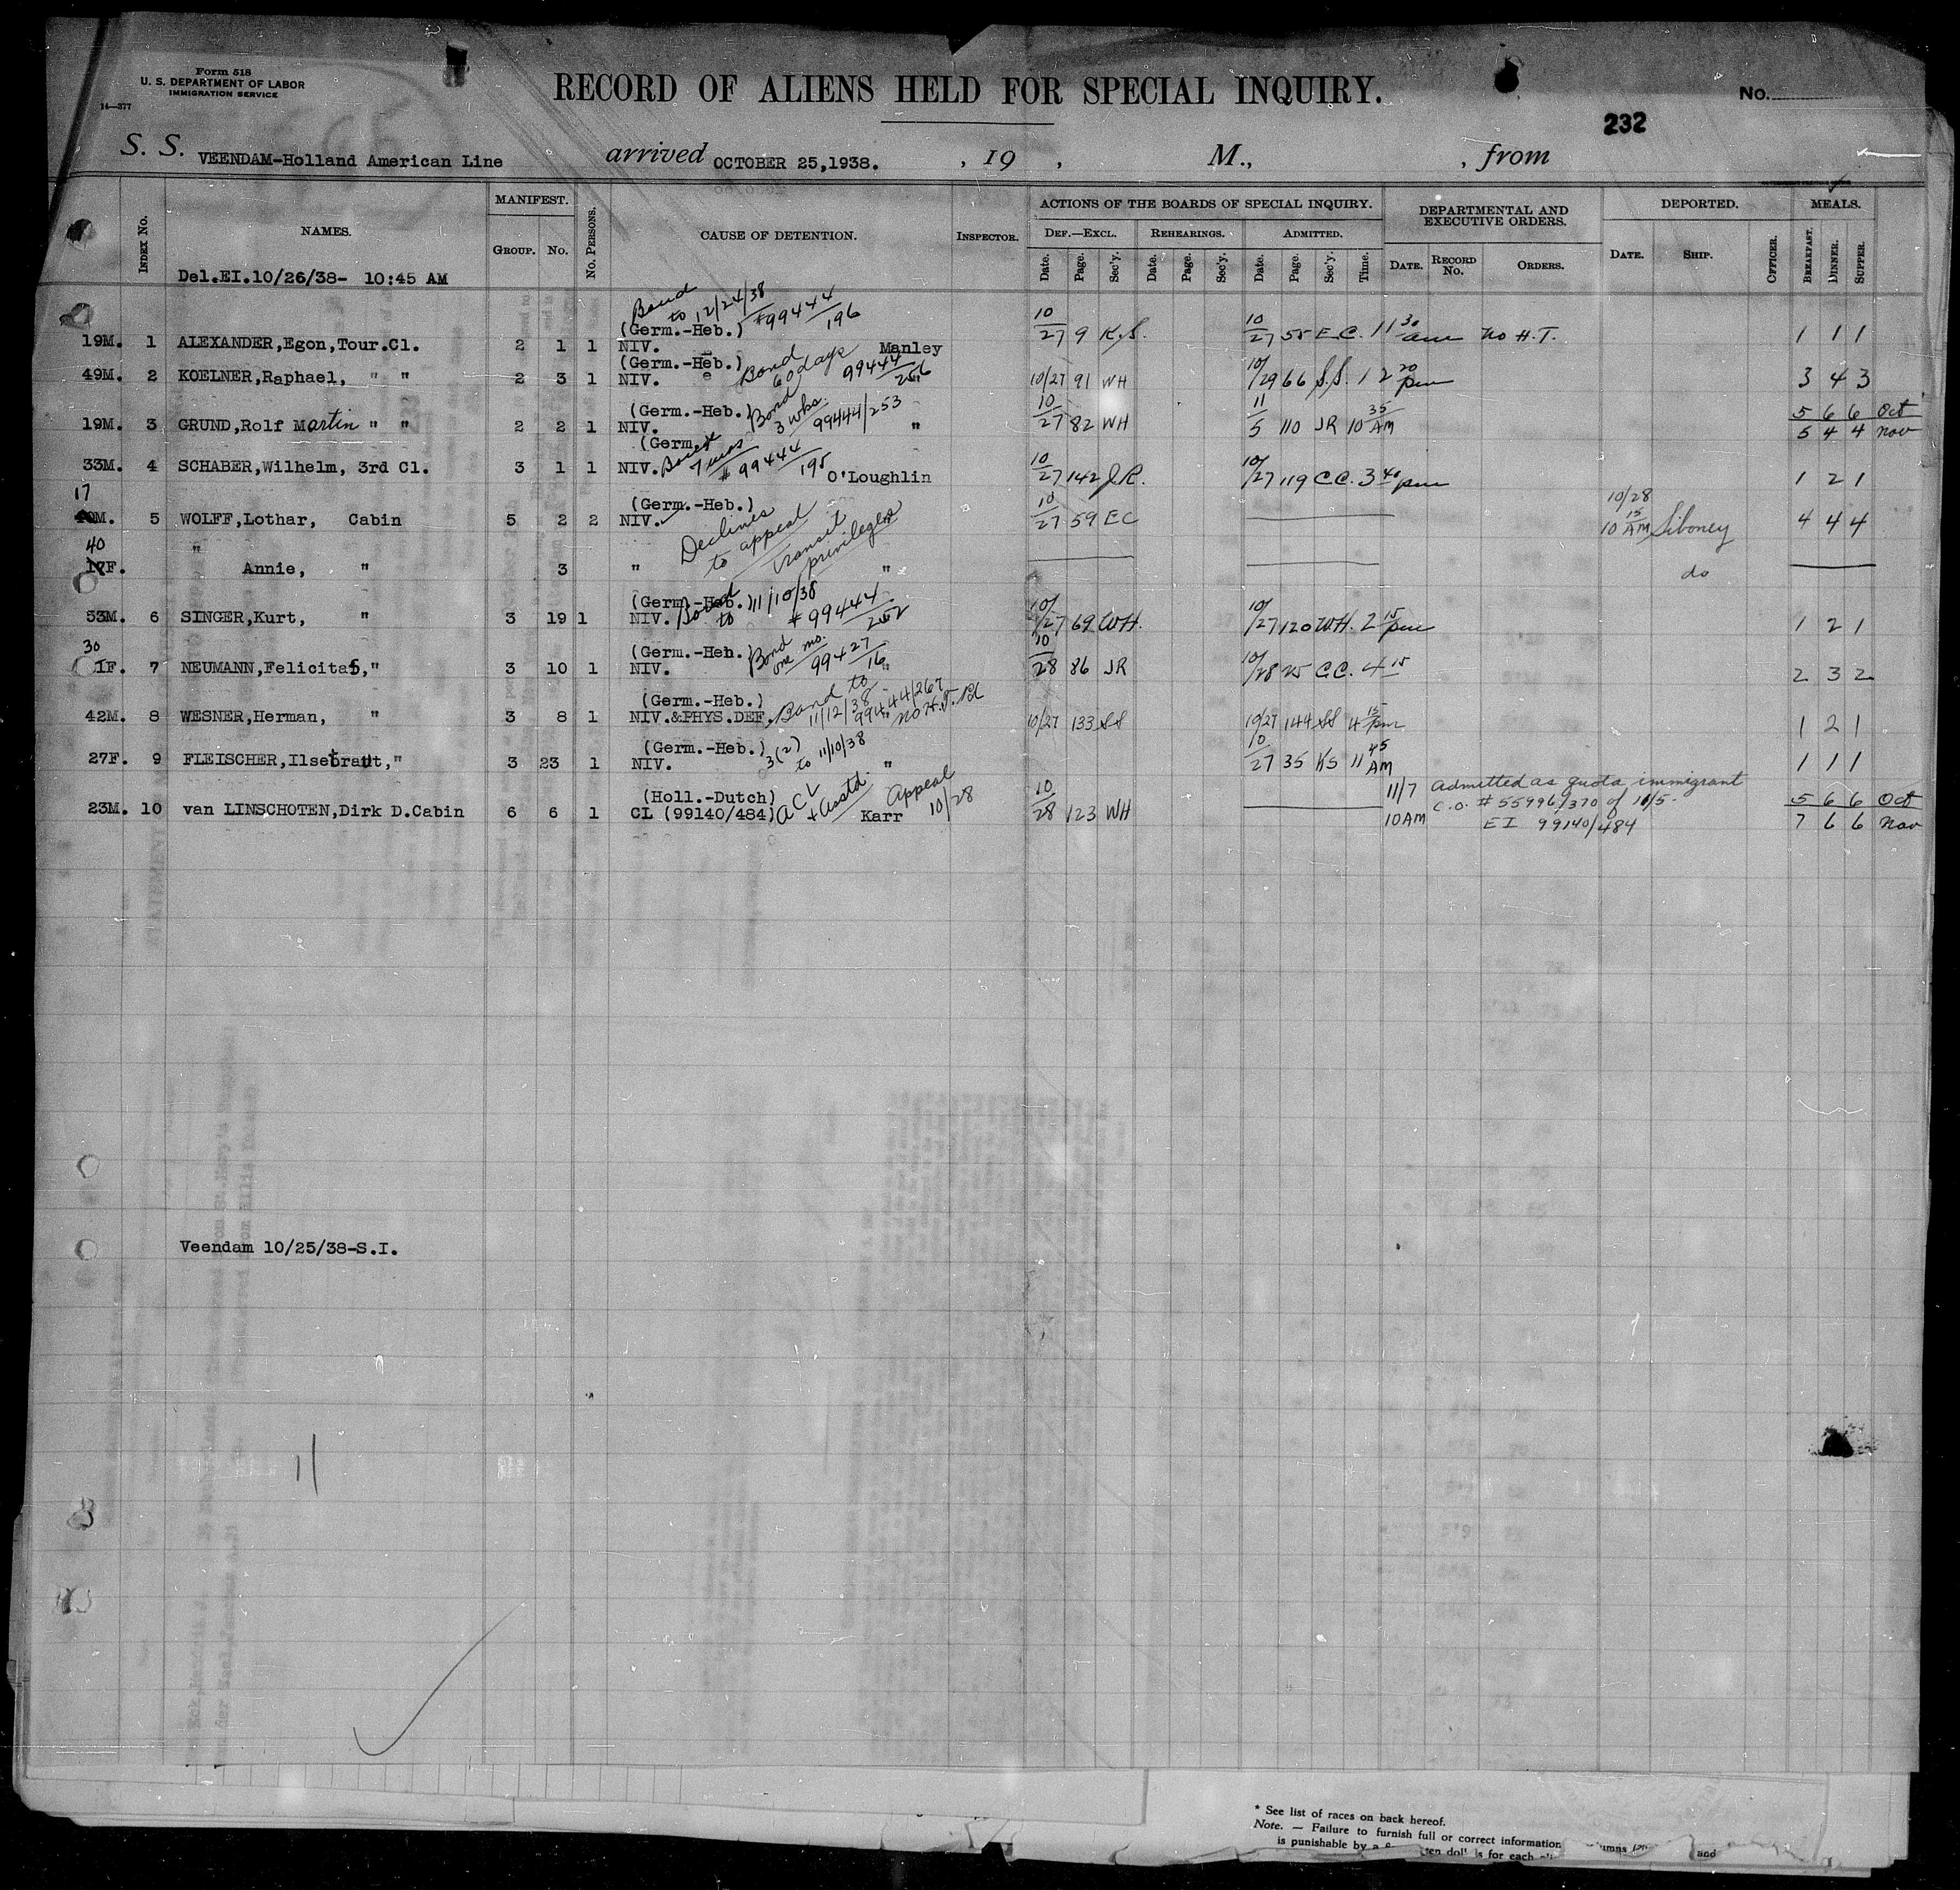 Form 518
U. S. DEPARTMENT OF LABOR
IMMIGRATION SERVICE
14—377
RECORD OF ALIENS HELD FOR SPECIAL INQUIRY.
No.
232
S. S. VEENDAM-Holland American Line arrived OCTOBER 25,1938. , 19 , M., , from
INDEX NO. NAMES. MANIFEST. GROUP. NO. NO. PERSONS. CAUSE OF DETENTION. INSPECTOR. ACTIONS OF THE BOARDS OF SPECIAL INQUIRY. DEF.—EXCL. REHEARINGS. ADMITTED. DEPARTMENTAL AND EXECUTIVE ORDERS. DEPORTED. MEALS.
Date. Page. Sec'y. Date. Page. Sec'y. Date. Page. Sec'y. Time. DATE. RECORD NO. ORDERS. DATE. SHIP. OFFICER. BREAKFAST. DINNER. SUPPER.
Del.EI.10/26/38- 10:45 AM
Bond to 12/24/38 #99444/196
(Germ.-Heb.)
19M. 1 ALEXANDER,Egon,Tour.Cl. 2 1 1 NIV. Manley 10/27 9 K.S. 10/27 55 E.C. 11 30 am No H.T. 1 1 1
(Germ.-Heb.) Bond 60 days
49M. 2 KOELNER,Raphael, " " 2 3 1 NIV. " 10/27 91 WH 10/29 66 S.S. 12 20 pm 3 4 3
(Germ.-Heb.) Bond 3 wks. 99444/253
19M. 3 GRUND,Rolf Martin " " 2 2 1 NIV. " 10/27 82 WH 11/5 110 JR 10 35 AM 5 6 6 Oct
5 4 4 Nov
(Germ. Bond #99444/195
33M. 4 SCHABER,Wilhelm, 3rd Cl. 3 1 1 NIV. O'Loughlin 10/27 142 J.R. 10/27 119 C.C. 3 40 pm 1 2 1
(Germ.-Heb.)
17 M. 5 WOLFF,Lothar, Cabin 5 2 2 NIV. Declines to appeal transit privileges 10/27 59 EC 10/28 10 15 AM Siboney 4 4 4
40 F. " Annie, " 3 " " do
(Germ.-Heb.) Bond to 11/10/38 #99444/252
53M. 6 SINGER,Kurt, " 3 19 1 NIV. 10/27 69 WH. 10/27 120 WH. 2 15 pm 1 2 1
(Germ.-Heb.) Bond one mo. 99427/16
30 F. 7 NEUMANN,Felicitas," 3 10 1 NIV. " 10/28 86 JR 10/28 25 C.C. 4 15 2 3 2
(Germ.-Heb.) Bond to 11/12/38 99444/267 no H.T.
42M. 8 WESNER,Herman, " 3 8 1 NIV.&PHYS.DEF. " 10/27 133 SS 10/27 144 SS 4 15 pm 1 2 1
(Germ.-Heb.) 3(2) to 11/10/38
27F. 9 FLEISCHER,Ilsetraut," 3 23 1 NIV. " 10/27 35 KS 11 45 AM 1 1 1
(Holl.-Dutch) ACL + asstd. Appeal 10/28
23M. 10 van LINSCHOTEN,Dirk D.Cabin 6 6 1 CL (99140/484) Karr 10/28 123 WH 11/7 10AM Admitted as quota immigrant
C.O. # 55996/370 of 11/5.
EI 99140/484
5 6 6 Oct
7 6 6 Nov
Veendam 10/25/38-S.I.
11
* See list of races on back hereof.
Note. — Failure to furnish full or correct information
is punishable by a for each
and